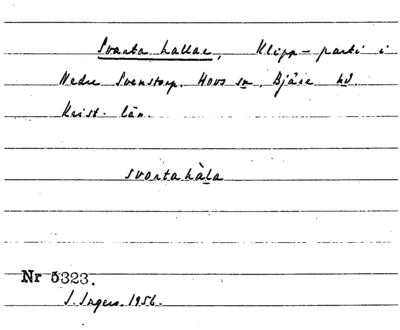 Svarta hallar, Klipp-parti i
Nedre Svenstorp. Hovs sn. Bjäre hd.
Krist. län.
svartahàla
Nr 5323.
I. Ingers. 1956.